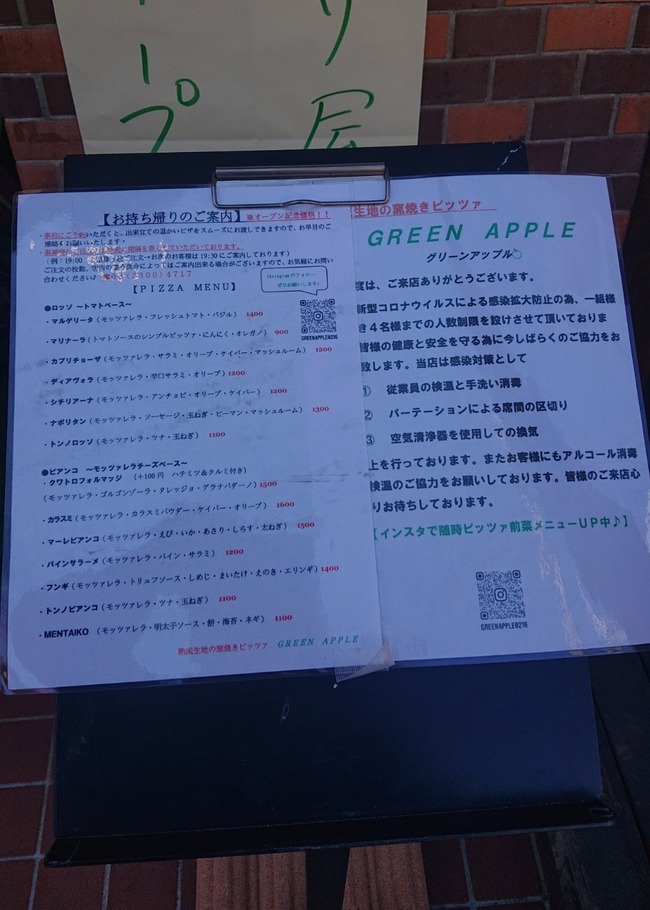 プ
り屋
【お持ち帰りのご案内】※オープン記念価格!!
・事前にご予約いただくと、出来立ての温かいピザをスムーズにお渡しできますので、お早目のご連絡をお願いいたします。
ご注文の枚数、
合わせください♪
instagramのフォローぜひお願いします♪
【PIZZA MENU】
GREENAPPLE0216
●ロッソ ～トマトベース～
・マルゲリータ(モッツァレラ・フレッシュトマト・バジル) 1400
・マリナーラ(トマトソースのシンプルピッツァ・にんにく・オレガノ) 900
・カプリチョーザ(モッツァレラ・サラミ・オリーブ・ケイパー・マッシュルーム) 1200
・ディアヴォラ(モッツァレラ・辛口サラミ・オリーブ) 1200
・シチリアーナ(モッツァレラ・アンチョビ・オリーブ・ケイパー) 1200
・ナポリタン(モッツァレラ・ソーセージ・玉ねぎ・ピーマン・マッシュルーム) 1300
・トンノロッソ(モッツァレラ・ツナ・玉ねぎ) 1100
●ビアンコ ～モッツァレラチーズベース～
・クワトロフォルマッジ (+100円 ハチミツ&クルミ付き)
(モッツァレラ・ゴルゴンゾーラ・タレッジョ・グラナパダーノ) 1500
・カラスミ(モッツァレラ・カラスミパウダー・ケイパー・オリーブ) 1600
・マーレビアンコ(モッツァレラ・えび・いか・あさり・しらす・太ねぎ) 1500
・パインサラーメ(モッツァレラ・パイン・サラミ) 1200
・フンギ(モッツァレラ・トリュフソース・しめじ・まいたけ・えのき・エリンギ) 1400
・トンノビアンコ(モッツァレラ・ツナ・玉ねぎ) 1100
・MENTAIKO (モッツァレラ・明太子ソース・餅・海苔・ネギ) 1100
熟成生地の窯焼きピッツァ GREEN APPLE
生地の窯焼きピッツァ
GREEN APPLE
グリーンアップル
度は、ご来店ありがとうございます。
新型コロナウイルスによる感染拡大防止の為、一組様
き4名様までの人数制限を設けさせて頂いておりま
皆様の健康と安全を守る為に今しばらくのご協力をお
致します。当店は感染対策として
① 従業員の検温と手洗い消毒
② パーテーションによる席間の区切り
③ 空気清浄器を使用しての換気
上を行っております。またお客様にもアルコール消毒
検温のご協力をお願いしております。皆様のご来店心
りお待ちしております。
【インスタで随時ピッツァ前菜メニューUP中♪】
GREENAPPLE0216